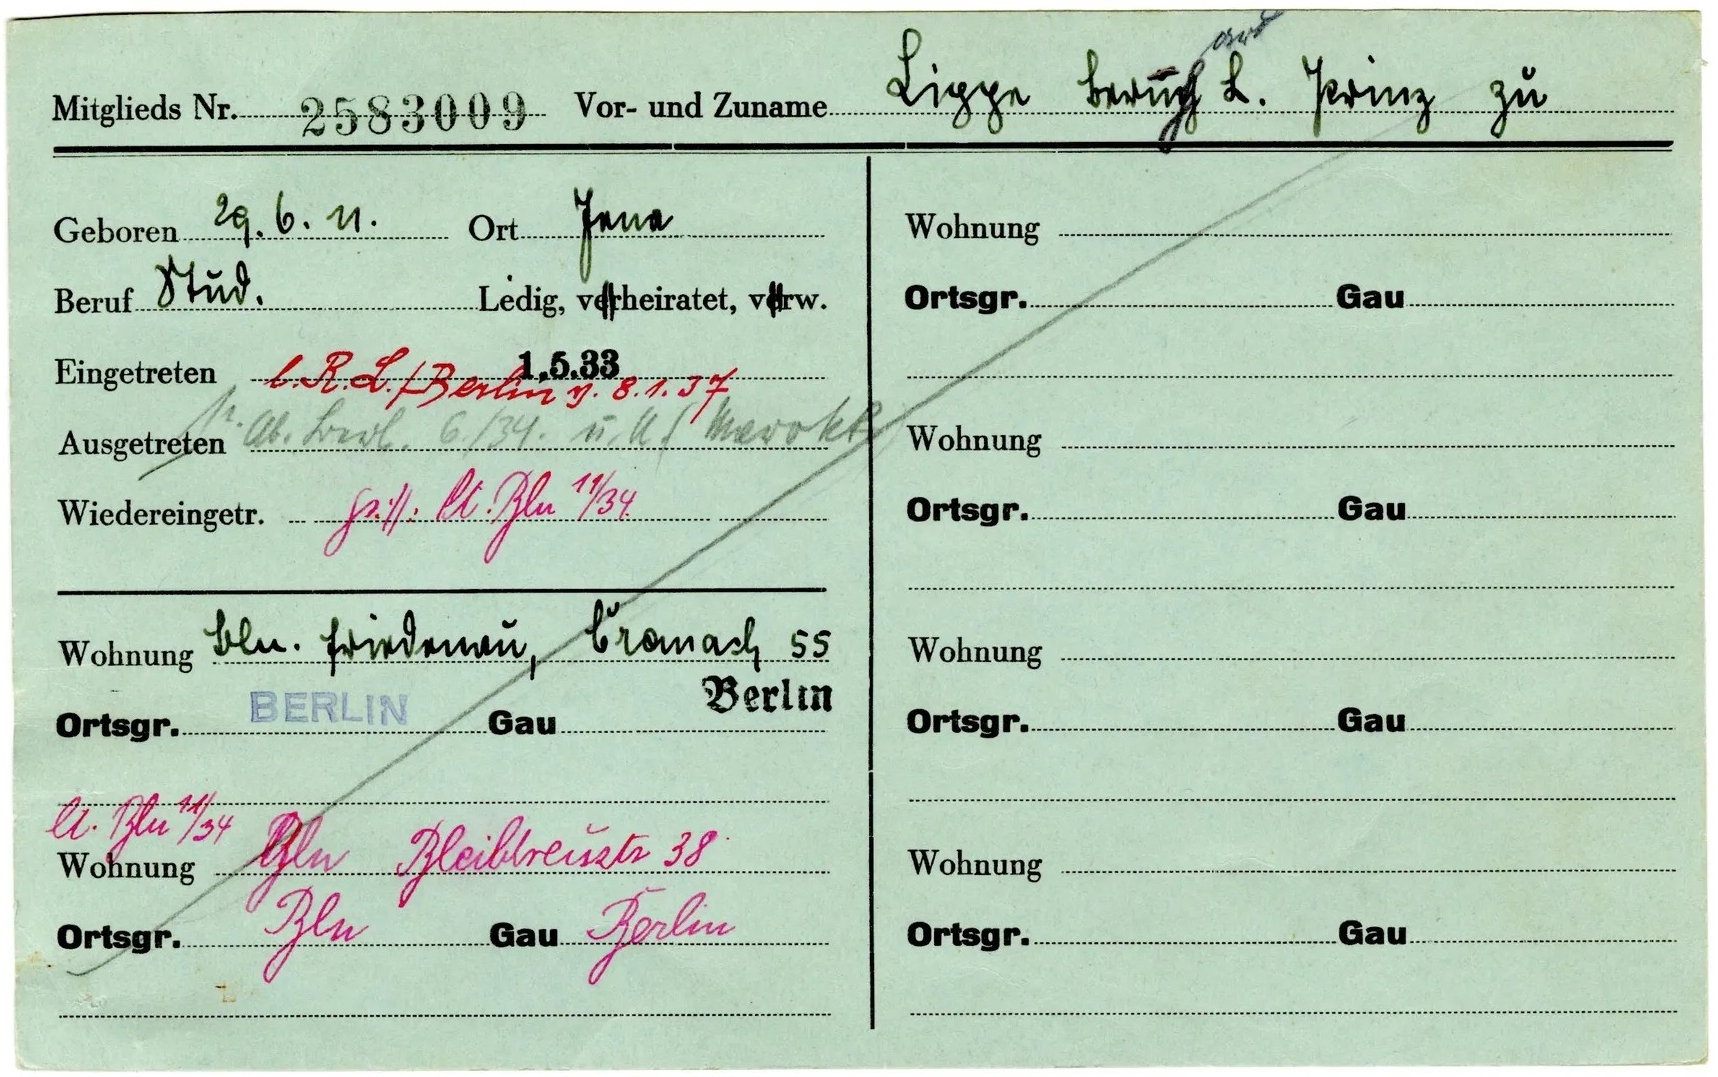 Mitglieds Nr. 2583009 Vor- und Zuname Lippe Bernh L. Prinz zu
Geboren 29. 6. 11. Ort Jena
Beruf Stud. Ledig, verheiratet, verw.
Eingetreten 1.5.33
l. R. L./Berlin v. 8.1.37
Ausgetreten 6/34. u.
Wiedereingetr. lt. Bln 11/34
Wohnung Bln. Friedenau, Cranach 55
Ortsgr. BERLIN Gau Berlin
lt. Bln 11/34
Wohnung Bln Bleibtreustr 38
Ortsgr. Bln Gau Berlin
Wohnung
Ortsgr. Gau
Wohnung
Ortsgr. Gau
Wohnung
Ortsgr. Gau
Wohnung
Ortsgr. Gau